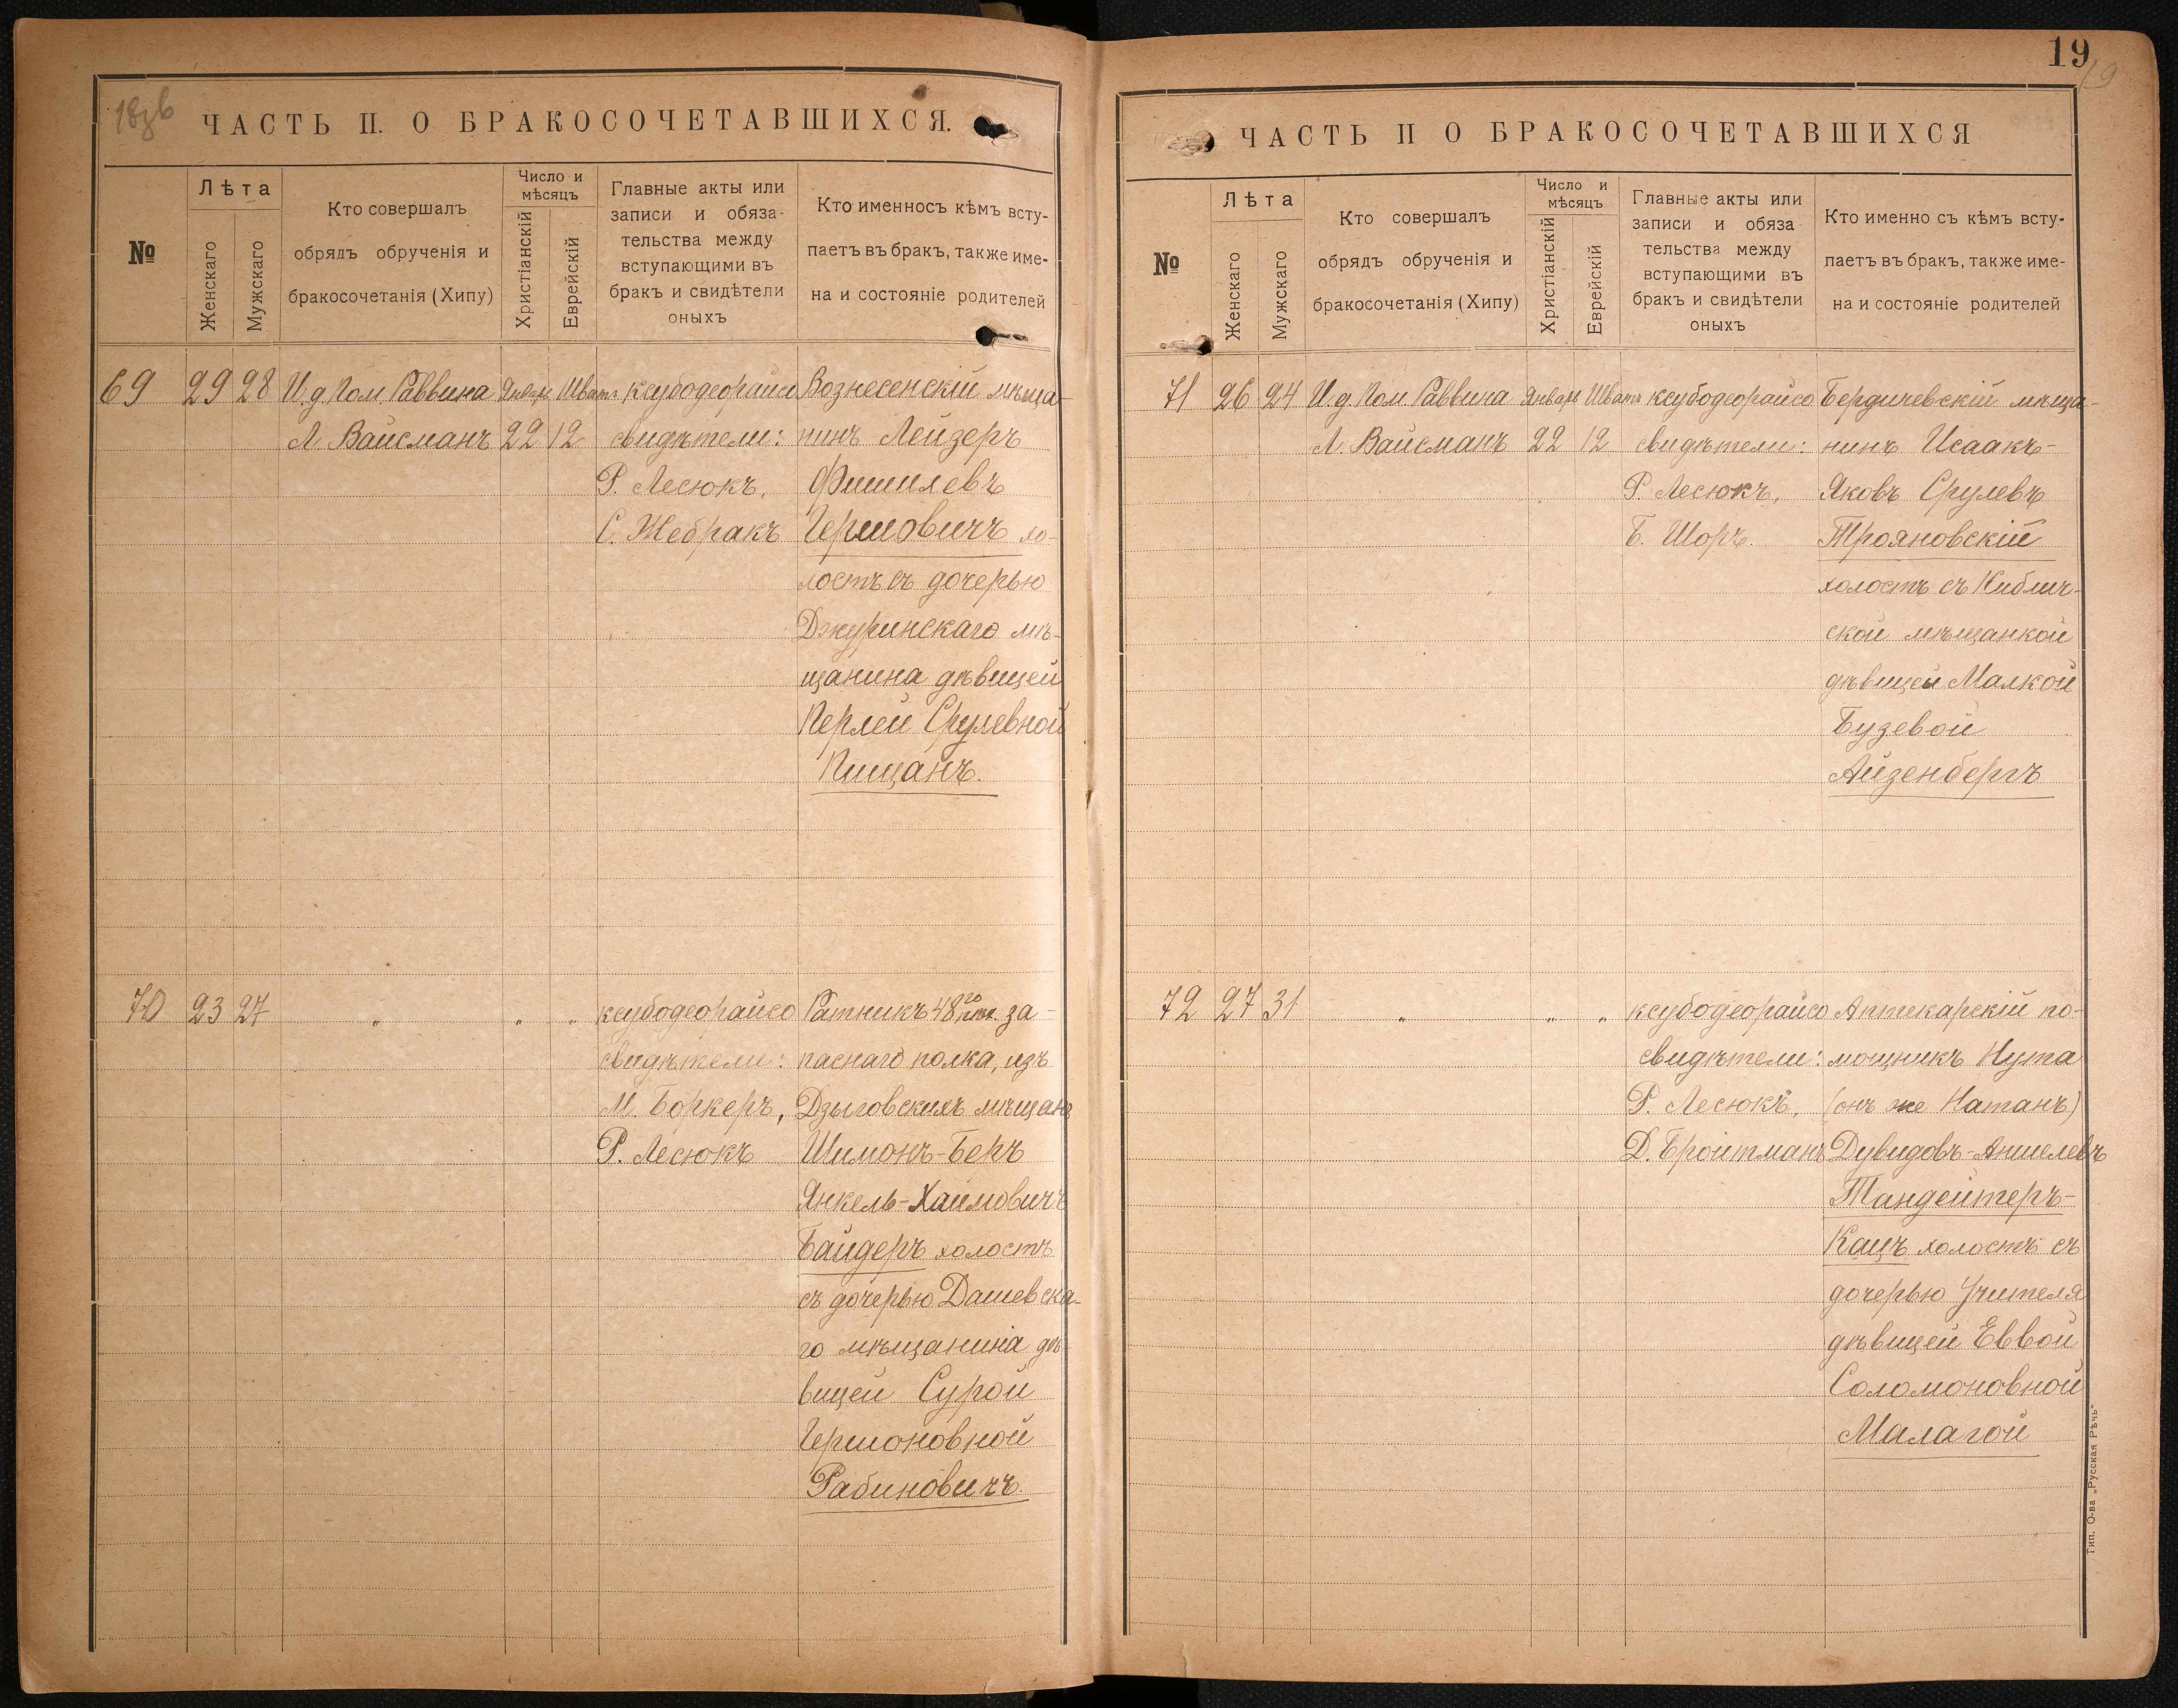 18зв
ЧАСТЬ II. О БРАКОСОЧЕТАВШИХСЯ.
№
Лѣта
Женскаго
Мужскаго
Кто совершалъ
обрядъ обрученія и
бракосочетанія (Хипу)
Число и
мѣсяцъ
Христіанскій
Еврейскій
Главные акты или
записи и обяза-
тельства между
вступающими въ
бракъ и свидѣтели
оныхъ
Кто именносъ кѣмъ всту-
паетъ въ бракъ, также име-
на и состояніе родителей
69 29 28 И. д. Пом. Раввина Январь Шватъ ксубодеорайсо Вознесенскій мѣща-
Л. Вайсманъ 22 12 свидѣтели: нинъ Лейзеръ
Р. Лесюкъ, Фишилевъ
С. Жебракъ Гершовичъ хо-
лостъ съ дочерью
Джуринскаго мѣ-
щанина дѣвицей
Перлей Срулевной
Пищанъ.
70 23 27 „ „ „ ксубодеорайсо Ратникъ 48го пѣх. за-
свидѣтели: паснаго полка, изъ
М. Боркеръ, Дзыговскихъ мѣщанъ
Р. Лесюкъ Шимонъ-Беръ
Янкель-Хаимовичъ
Байдеръ холостъ
съ дочерью Дашевска-
го мѣщанина дѣ-
вицей Сурой
Гершоновной
Рабиновичъ.
19
19
ЧАСТЬ II О БРАКОСОЧЕТАВШИХСЯ
№
Лѣта
Женскаго
Мужскаго
Кто совершалъ
обрядъ обрученія и
бракосочетанія (Хипу)
Число и
мѣсяцъ
Христіанскій
Еврейскій
Главные акты или
записи и обяза
тельства между
вступающими въ
бракъ и свидѣтели
оныхъ
Кто именно съ кѣмъ всту-
паетъ въ бракъ, также име-
на и состояніе родителей
71 26 24 И. д. Пом. Раввина Январь Шватъ ксубодеорайсо Бердичевскій мѣща-
Л. Вайсманъ 22 12 свидѣтели: нинъ Исаакъ-
Р. Лесюкъ, Яковъ Срулевъ
Б. Шоръ. Трояновскій
холостъ съ Киблич-
ской мѣщанкой
дѣвицей Малкой
Бузевой
Айзенбергъ
72 27 31 „ „ „ ксубодеорайсо Аптекарскій по-
свидѣтели: мощникъ Нута
Р. Лесюкъ, (онъ же Натанъ)
Д. Бройтманъ Дувидовъ-Аншелевъ
Тандейтеръ-
Кацъ холостъ съ
дочерью Учителя
дѣвицей Еввой
Соломоновной
Малагой
Тип. О-ва „Русская Рѣчь"